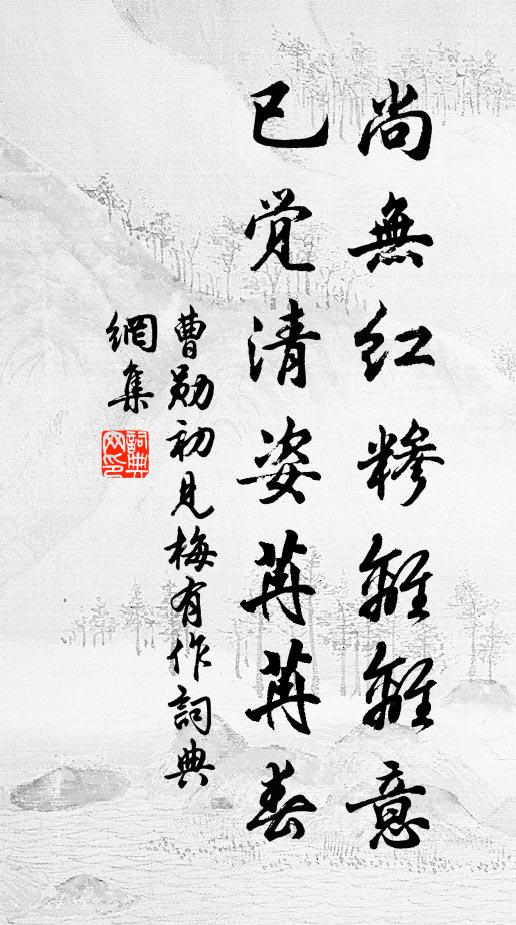 尚無红糝離離意
已覚清姿苒苒春
曹勛初見梅有作詞典
網集
詞典網印